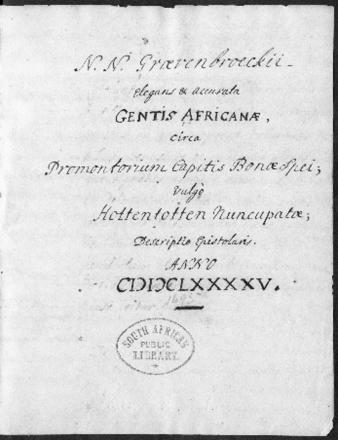 N. N. Grævenbroeckii
elegans & accurata
GENTIS AFRICANÆ,
circa
Promontorium Capitis Bonæ Spei;
Vulgò
Hottentotten Nuncupatæ;
Descriptio Epistolaris.
ANNO
CIƆIƆCLXXXXV.
1695
SOUTH AFRICAN
PUBLIC
LIBRARY.